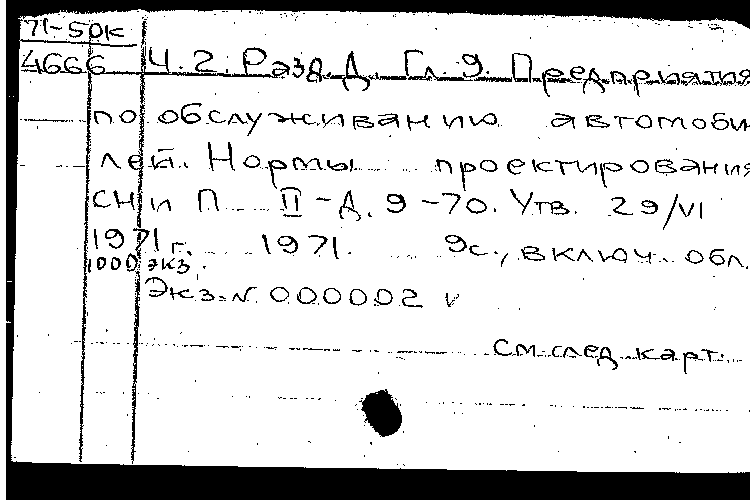 71-50к
4666 Ч.2. Разд.Д. Гл.9. Предприятия
по обслуживанию автомоби
лей. Нормы проектирования
СН и П II-Д.9-70. Утв. 29/VI
1971г. 1971. 9с., включ. обл.
1000 экз.
Экз.N 000002 v
См.след.карт.